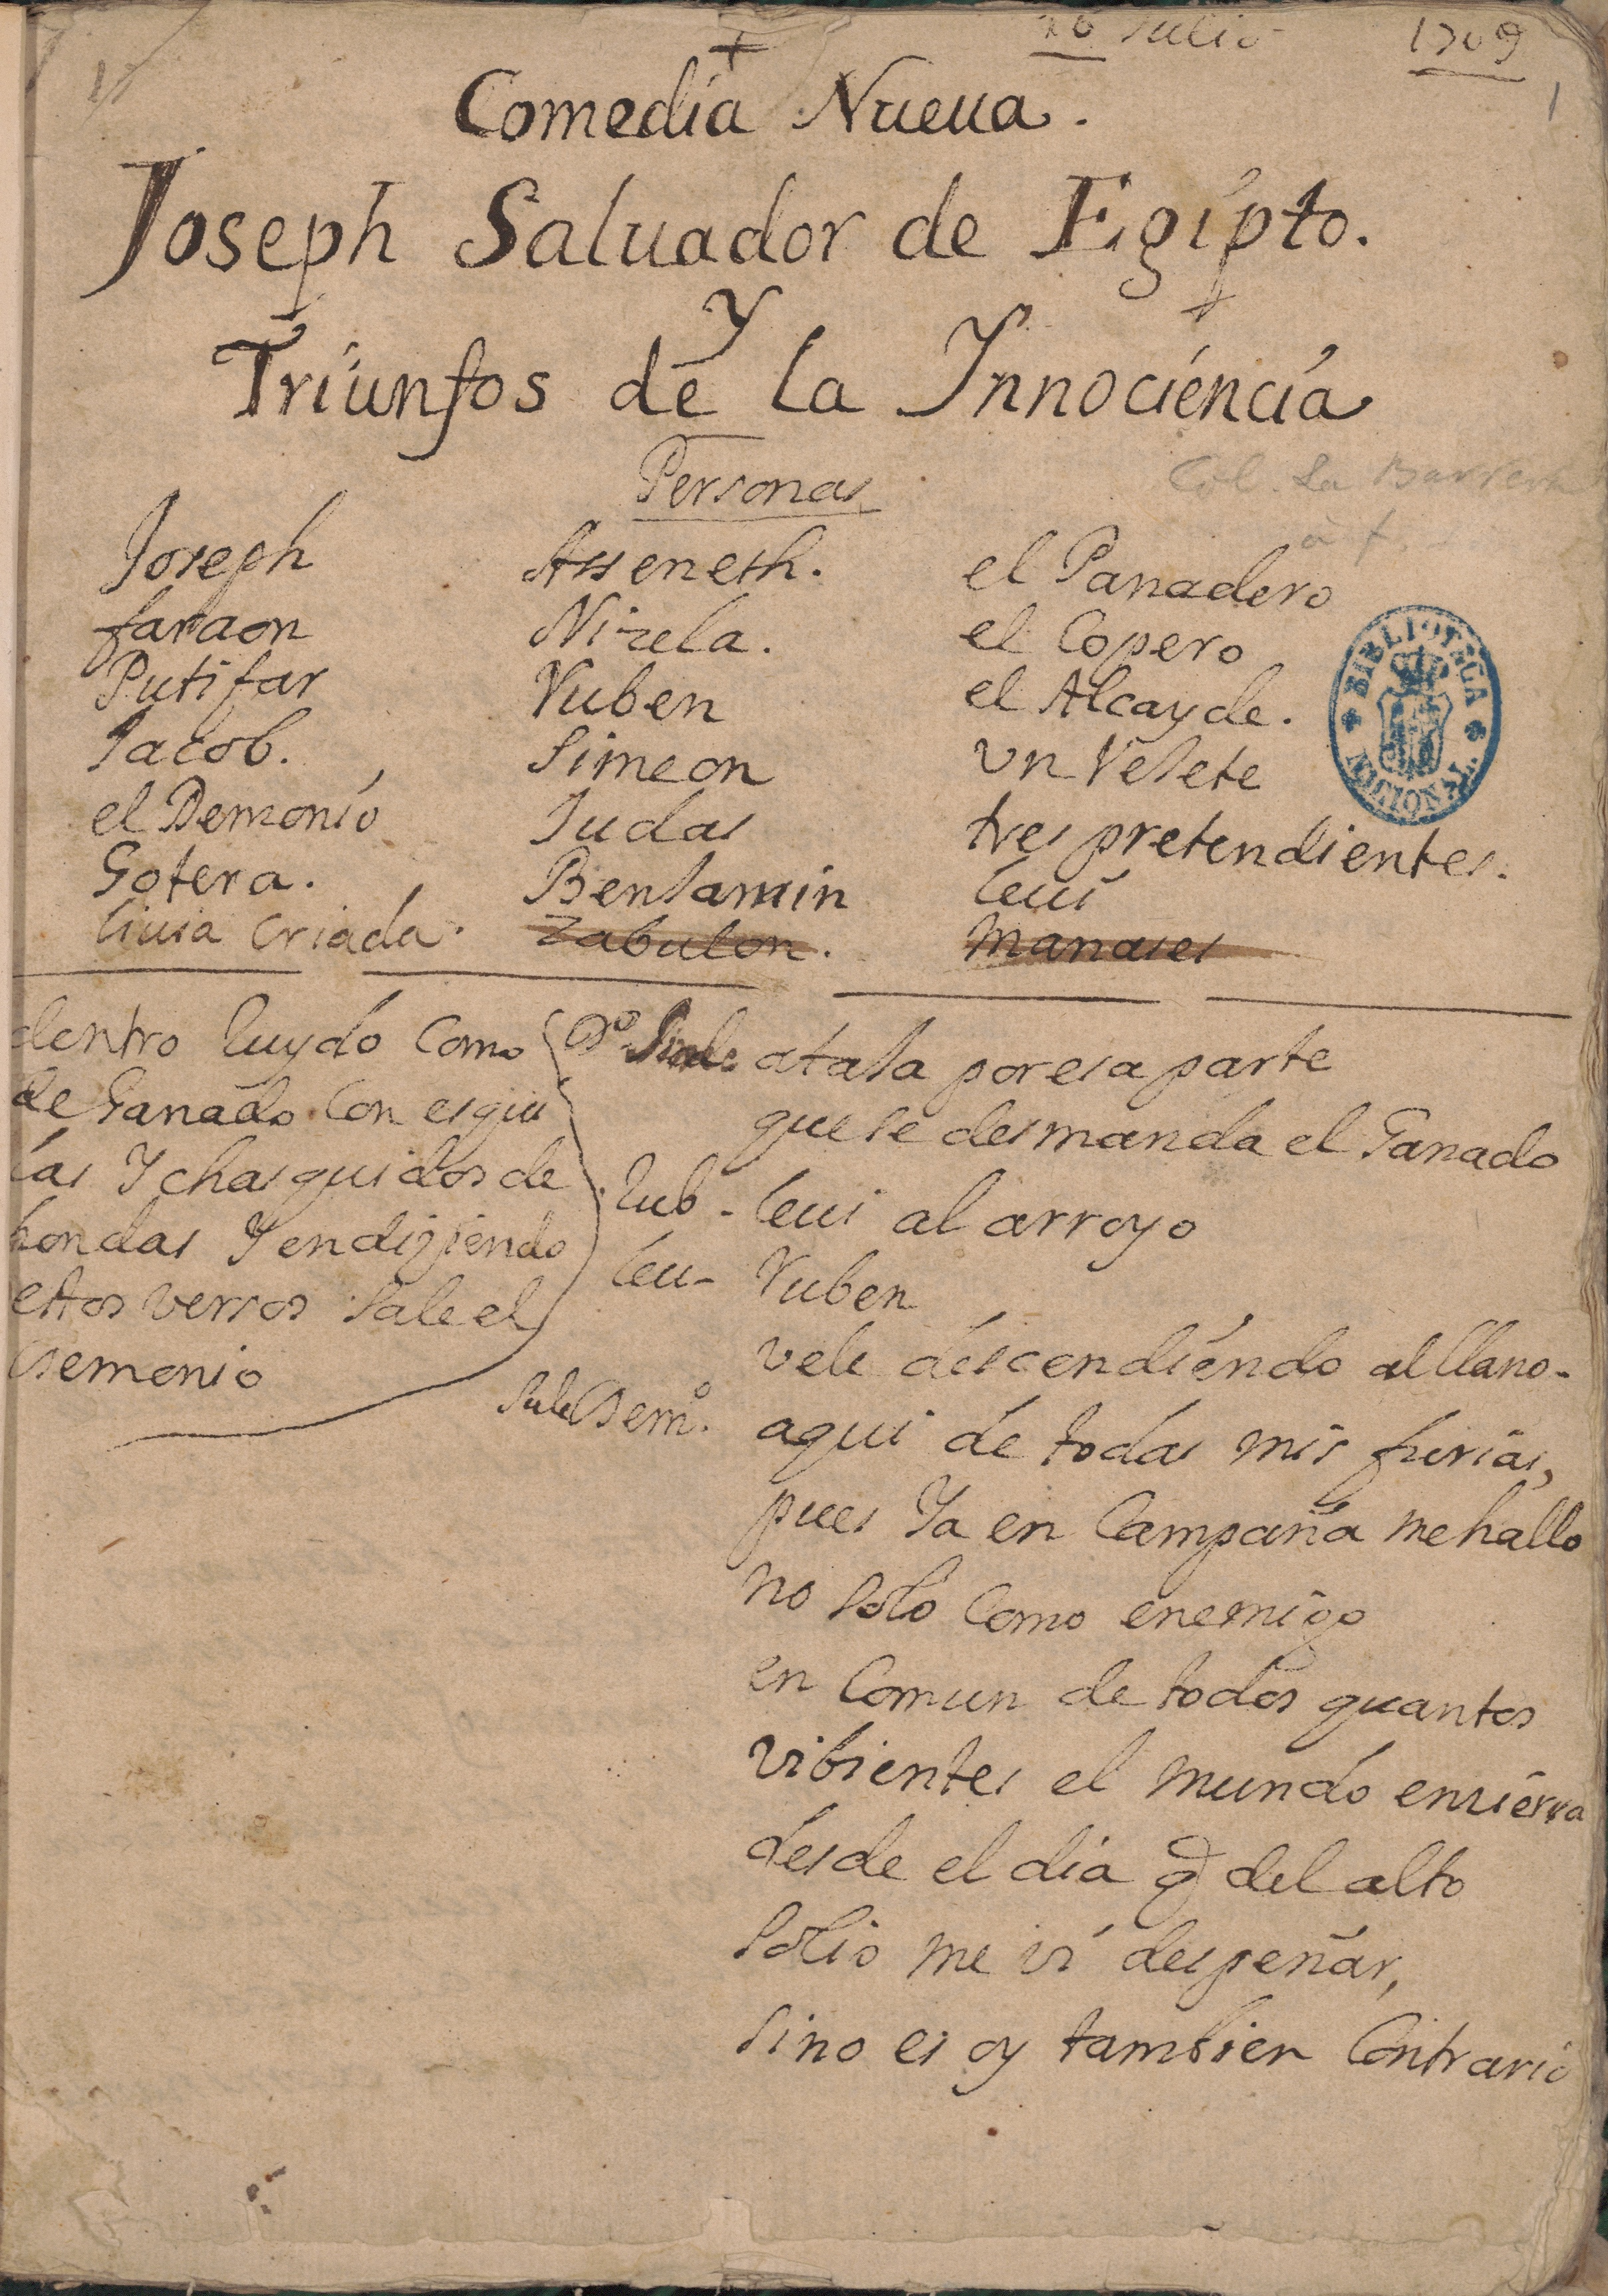 16 Julio 1709
1
Comedia Nueua.
Joseph Saluador de Egipto.
Y
Triunfos de la Innociencia
Personas
Col. La Barrera
Joseph
faraon
Putifar
Jacob.
el Demonio
Gotera.
liuia Criada.
Asseneth.
Nizela.
Ruben
Simeon
Judas
Benjamin
Zabulon.
el Panadero
el Copero
el Alcayde.
vn Vejete
tres pretendientes.
leui
Manases
BIBLIOTECA NACIONAL
dentro Ruydo Como
de Ganado Con esqui
las Y chasquidos de
hondas Y en diziendo
estos versos Sale el
Demonio
Do ataja por esa parte
que se desmanda el Ganado
Rub - leui al arroyo
leu - Ruben
vele descendiendo al llano -
Sale Demo. aqui de todas mis furias,
pues Ya en Campaña me hallo
no solo Como enemigo
en Comun de todos quantos
vibientes el mundo enzierra
desde el dia q del alto
solio me vi despeñar,
sino es oy tambien Contrario